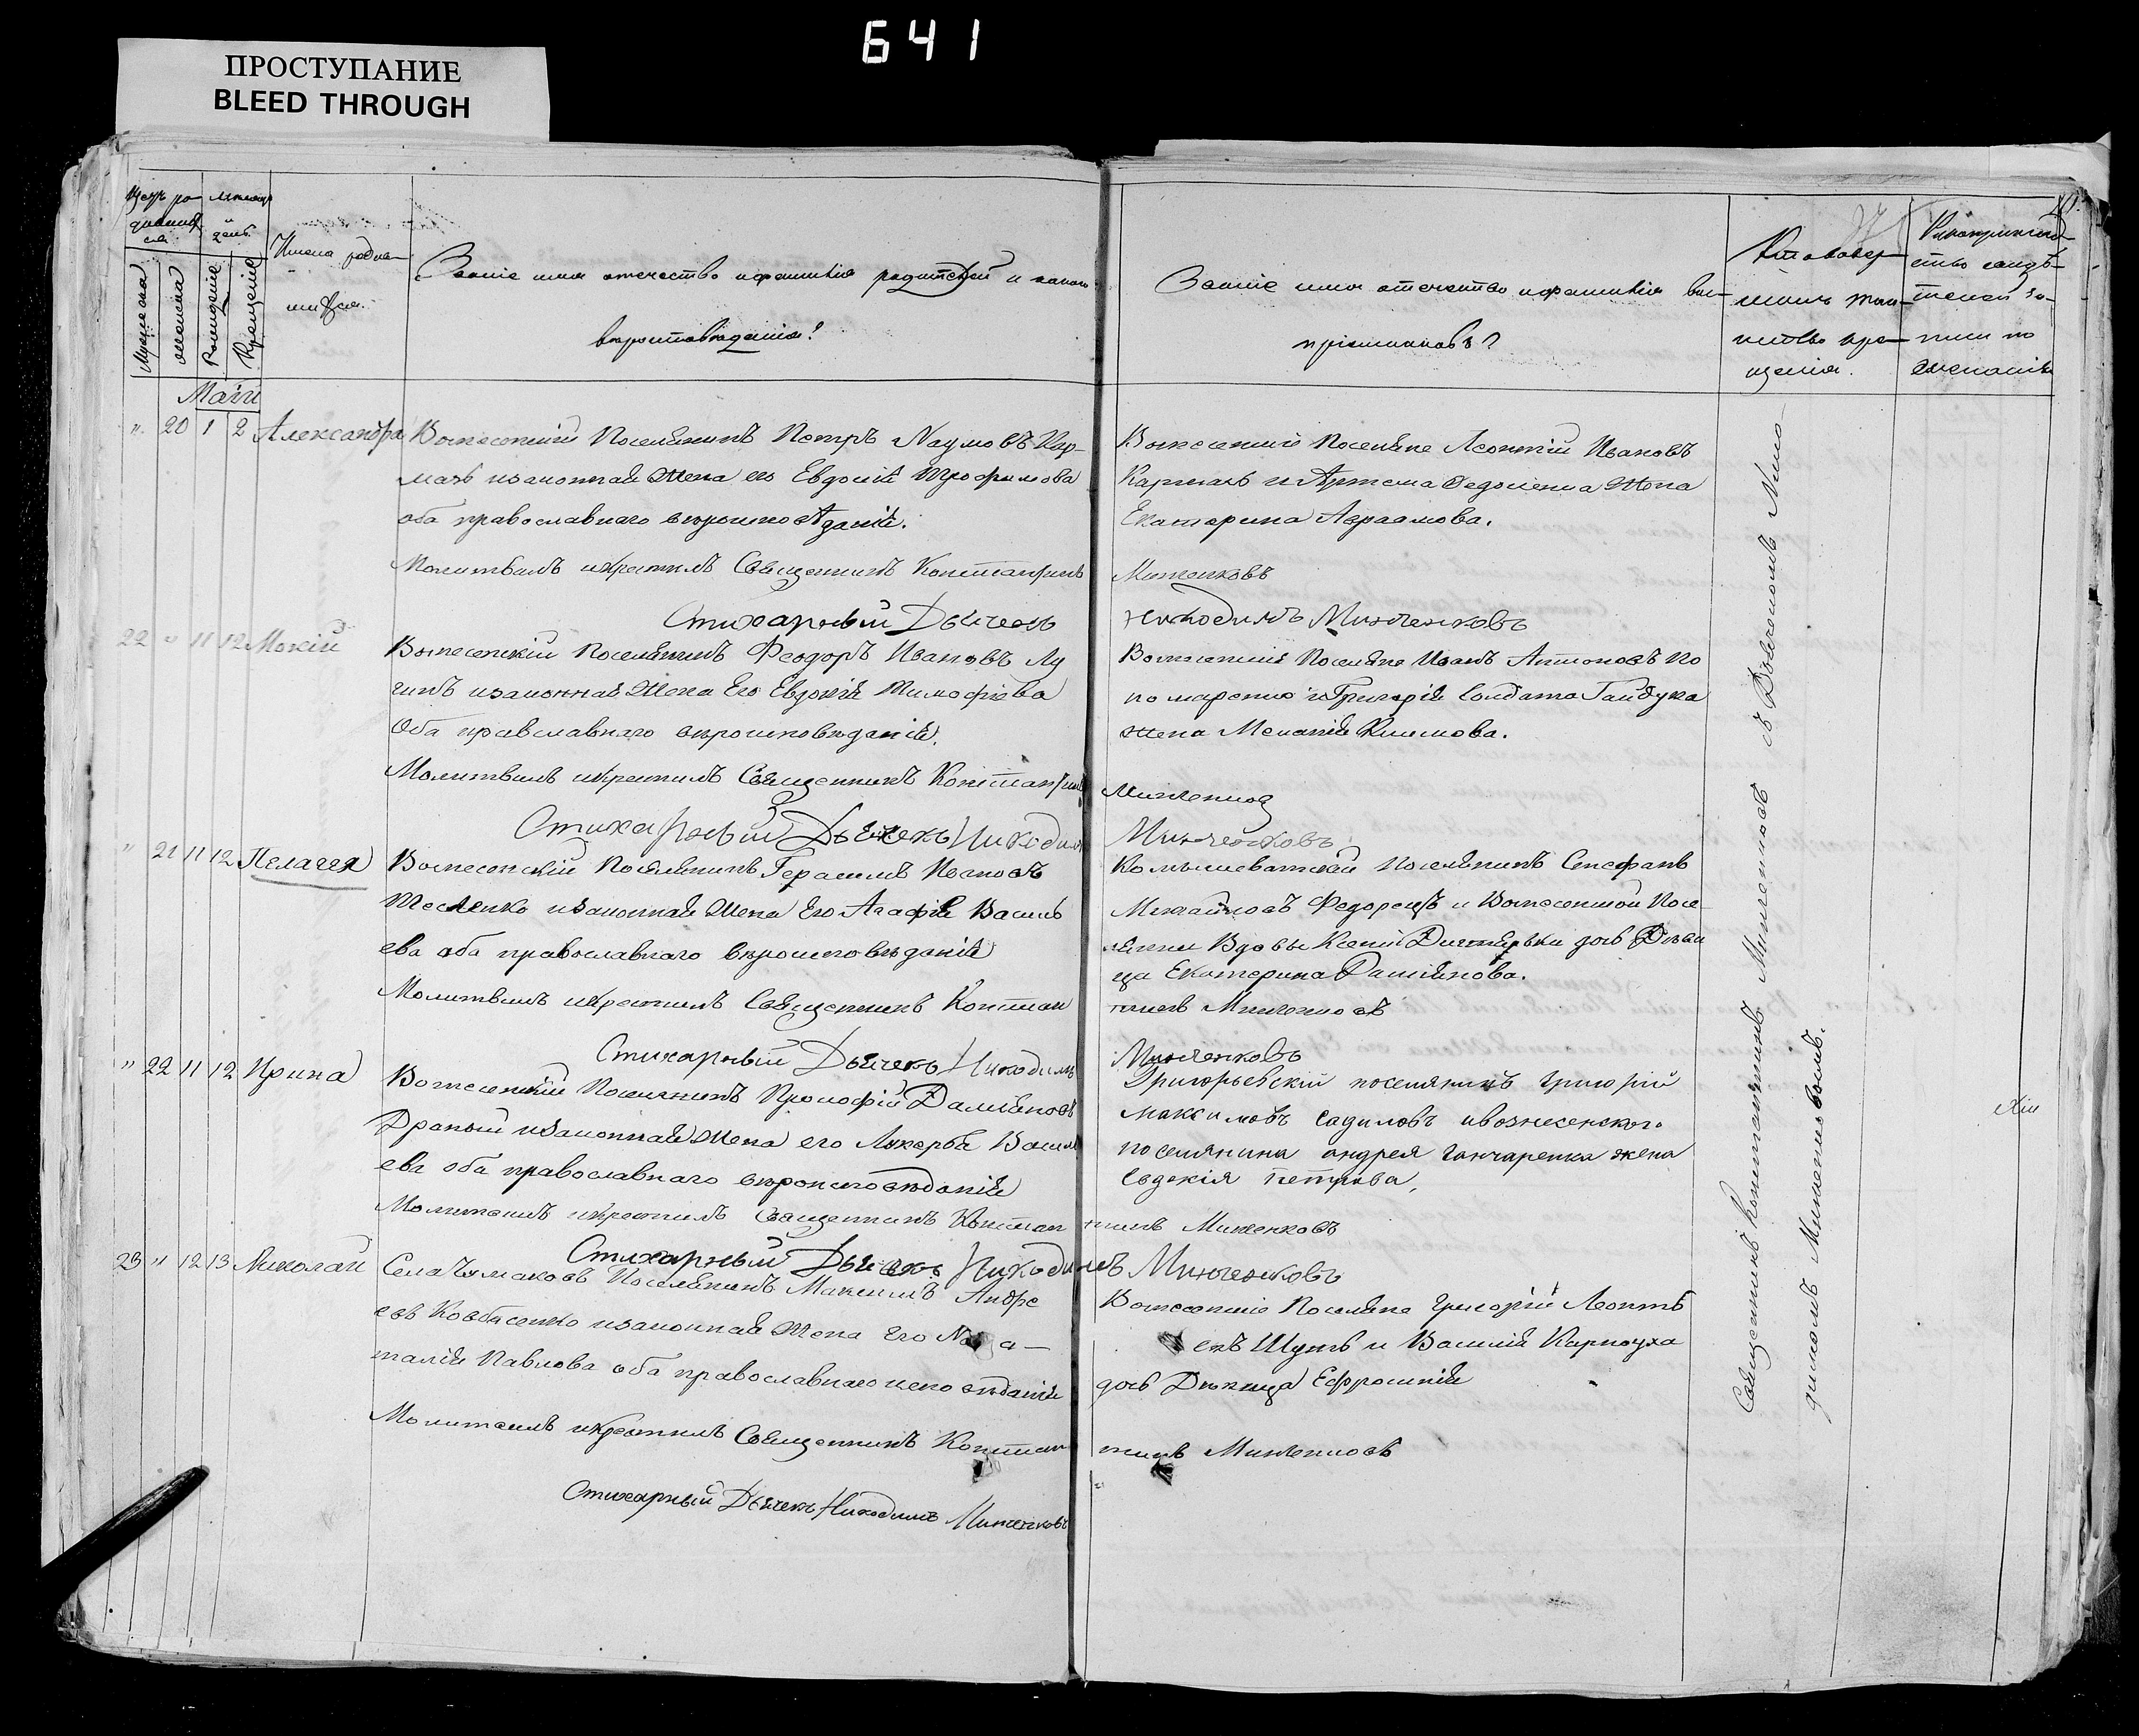 641
ПРОСТУПАНИЕ
BLEED THROUGH
Имена родив
шихся.
Званіе имя отечество и фамилія родителей и какого
вѣроисповѣданія?
Званіе имя отечество и фамилія вос
пріемниковъ?
Кто совер
шалъ таин
ство кре
щенія.
Рукоприклад
ство свидѣ
телей за
писи по
желанію
Мужеска
женска
Рожденіе
Крещеніе
Маія
" 20 1 2 Александра
Вознесенскій Поселянинъ Петръ Наумовъ Кар
махъ и законная Жена его Евдокія Трофимова
оба православнаго вѣроисповѣданія.
Молитвилъ и крестилъ Священникъ Константинъ
Стихарный Дьячекъ
Вознесенскіе Поселяне Леонтій Ивановъ
Кармахъ и Артема Федоченка Жена
Екатерина Авраамова.
Минченковъ
Никодимъ Минченковъ
22 " 11 12 Мокій
Вознесенскій Поселянинъ Феодоръ Ивановъ Лу
чинъ и законная Жена Его Евдокія Тимофіева
Оба православнаго вѣроисповѣданія.
Молитвилъ и крестилъ Священникъ Константинъ
Стихарный Дьячекъ Никодимъ
Вознесенскіе Поселяне Иванъ Антоновъ По
номаренко и Григорія Солдата Гайдука
жена Меланія Климова.
Минченковъ
Минченковъ
" 21 11 12 Пелагея
Вознесенскій Поселянинъ Герасимъ
Тесленко и законная Жена Его Агафія Василь
ева оба православнаго вѣроисповѣданія
Молитвилъ и крестилъ Священникъ Констан
Стихарный Дьячекъ Никодимъ
Комышеватскій Поселянинъ Стефанъ
Михайловъ Федорецъ и Вознесенской Посе
лянки Вдовы Ксеніи дочь Дѣви
ца Екатерина Даміянова.
тинъ Минченковъ
Минченковъ
" 22 11 12 Ирина
Вознесенскій Поселянинъ Прокофій Даміяновъ
Драный и законная Жена его Лукерья Василь
ева оба православнаго вѣроисповѣданія
Молитвилъ и крестилъ Священникъ Констан
Стихарный Дьячекъ Никодимъ
Григорьевскій поселянинъ Григорій
максимовъ Садиловъ и вознесенского
поселянина андрея Гончаренка жена
Евдокія Петрова,
тинъ Минченковъ
Минченковъ
23 " 12 13 Николай
Села Чумаковъ Поселянинъ Максимъ Андре
евъ Ковбасенко и законная Жена Его На
талія Павлова оба православнаго исповѣданія
Молитвилъ и крестилъ Священникъ Констан
Стихарный Дьячекъ Никодимъ Минченковъ
Вознесенскіе Поселяне Григорій Леонть
евъ Шутъ и Василія Карпоуха
дочь Дѣвица Ефросинія
тинъ Минченковъ
Священникъ Константинъ Минченковъ съ Дьячкомъ Нико
димомъ Минченковымъ.